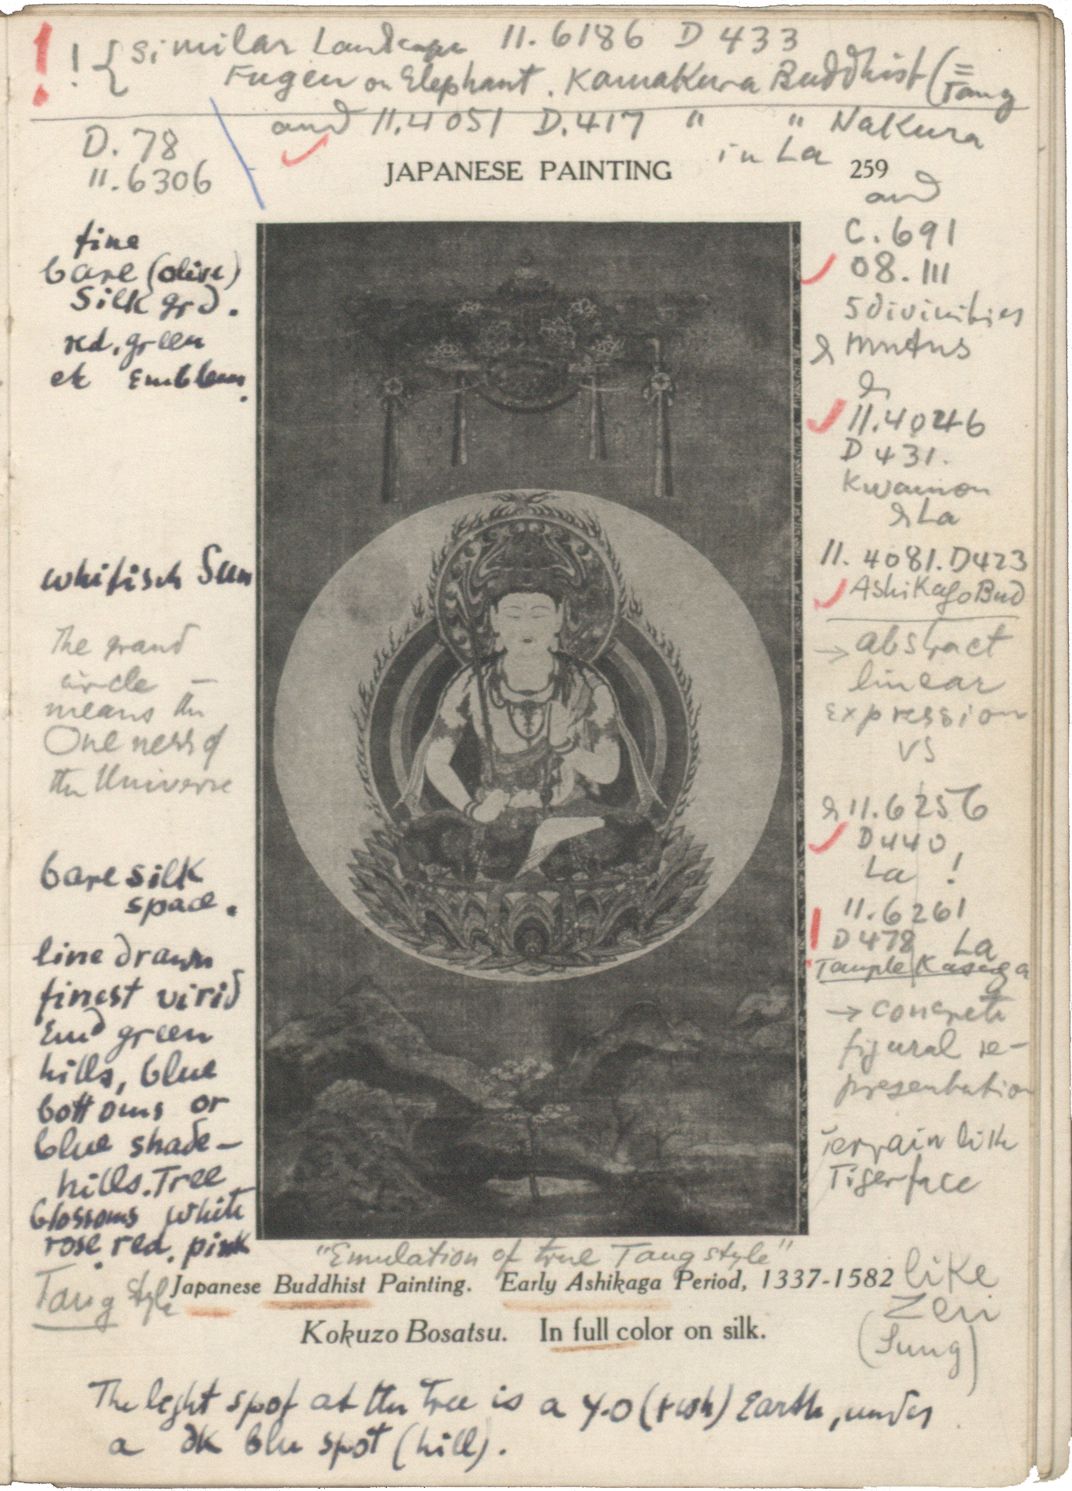 ! ! { Similar Landscape 11.6186 D 433
Fugen on Elephant. Kamakura Buddhist (= Tang
and 11.4051 D.417 " " Nakura
in La
D. 78
11.6306
JAPANESE PAINTING 259
fine
bare (olive)
Silk grd.
red, green
etc Emblem.
whitisch Sun
The grand
circle —
means the
Oneness of
the Universe
bare silk
space.
line drawn
finest virid
Emd green
hills, blue
bottoms or
blue shade-
hills. Tree
blossoms white
rose, red, pink
Tang style
and
C. 691
08.111
5 divinities
&
11.4046
D 431.
Kwannon
& La
11.4081. D423
Ashikago Bud
→ abstract
linear
expression
VS
& 11.6256
D440
La !
11.6261
D478 La
Temple Kasuga
→ concrete
figural re-
presentation
Terrain like
Tigerface
"Emulation of true Tang style"
Japanese Buddhist Painting. Early Ashikaga Period, 1337-1582
like
Zen
(Sung)
Kokuzo Bosatsu. In full color on silk.
The light spot at the Tree is a y.o (rish) Earth, under
a dk blu spot (hill).